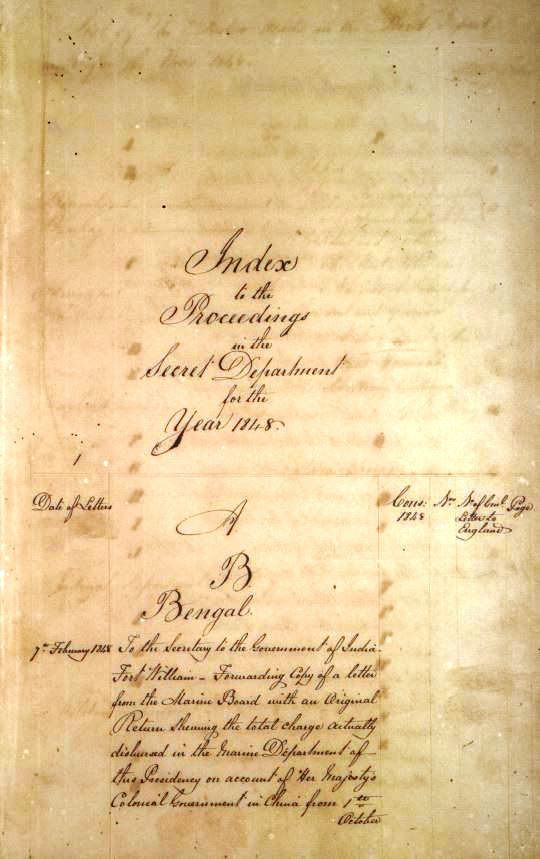 Index
to the
Proceedings
in the
Secret Department
for the
Year 1848.
1
Date of Letters
A
Cons:
1848
No.
No. of Genl.
Letter to
England
Page
B
Bengal.
7th February 1848 To the Secretary to the Government of India
Fort William - Forwarding Copy of a letter
from the Marine Board with an Original
Return shewing the total charge actually
disbursed in the Marine Department of
this Presidency on account of Her Majesty's
Colonial Government in China from 1st
October